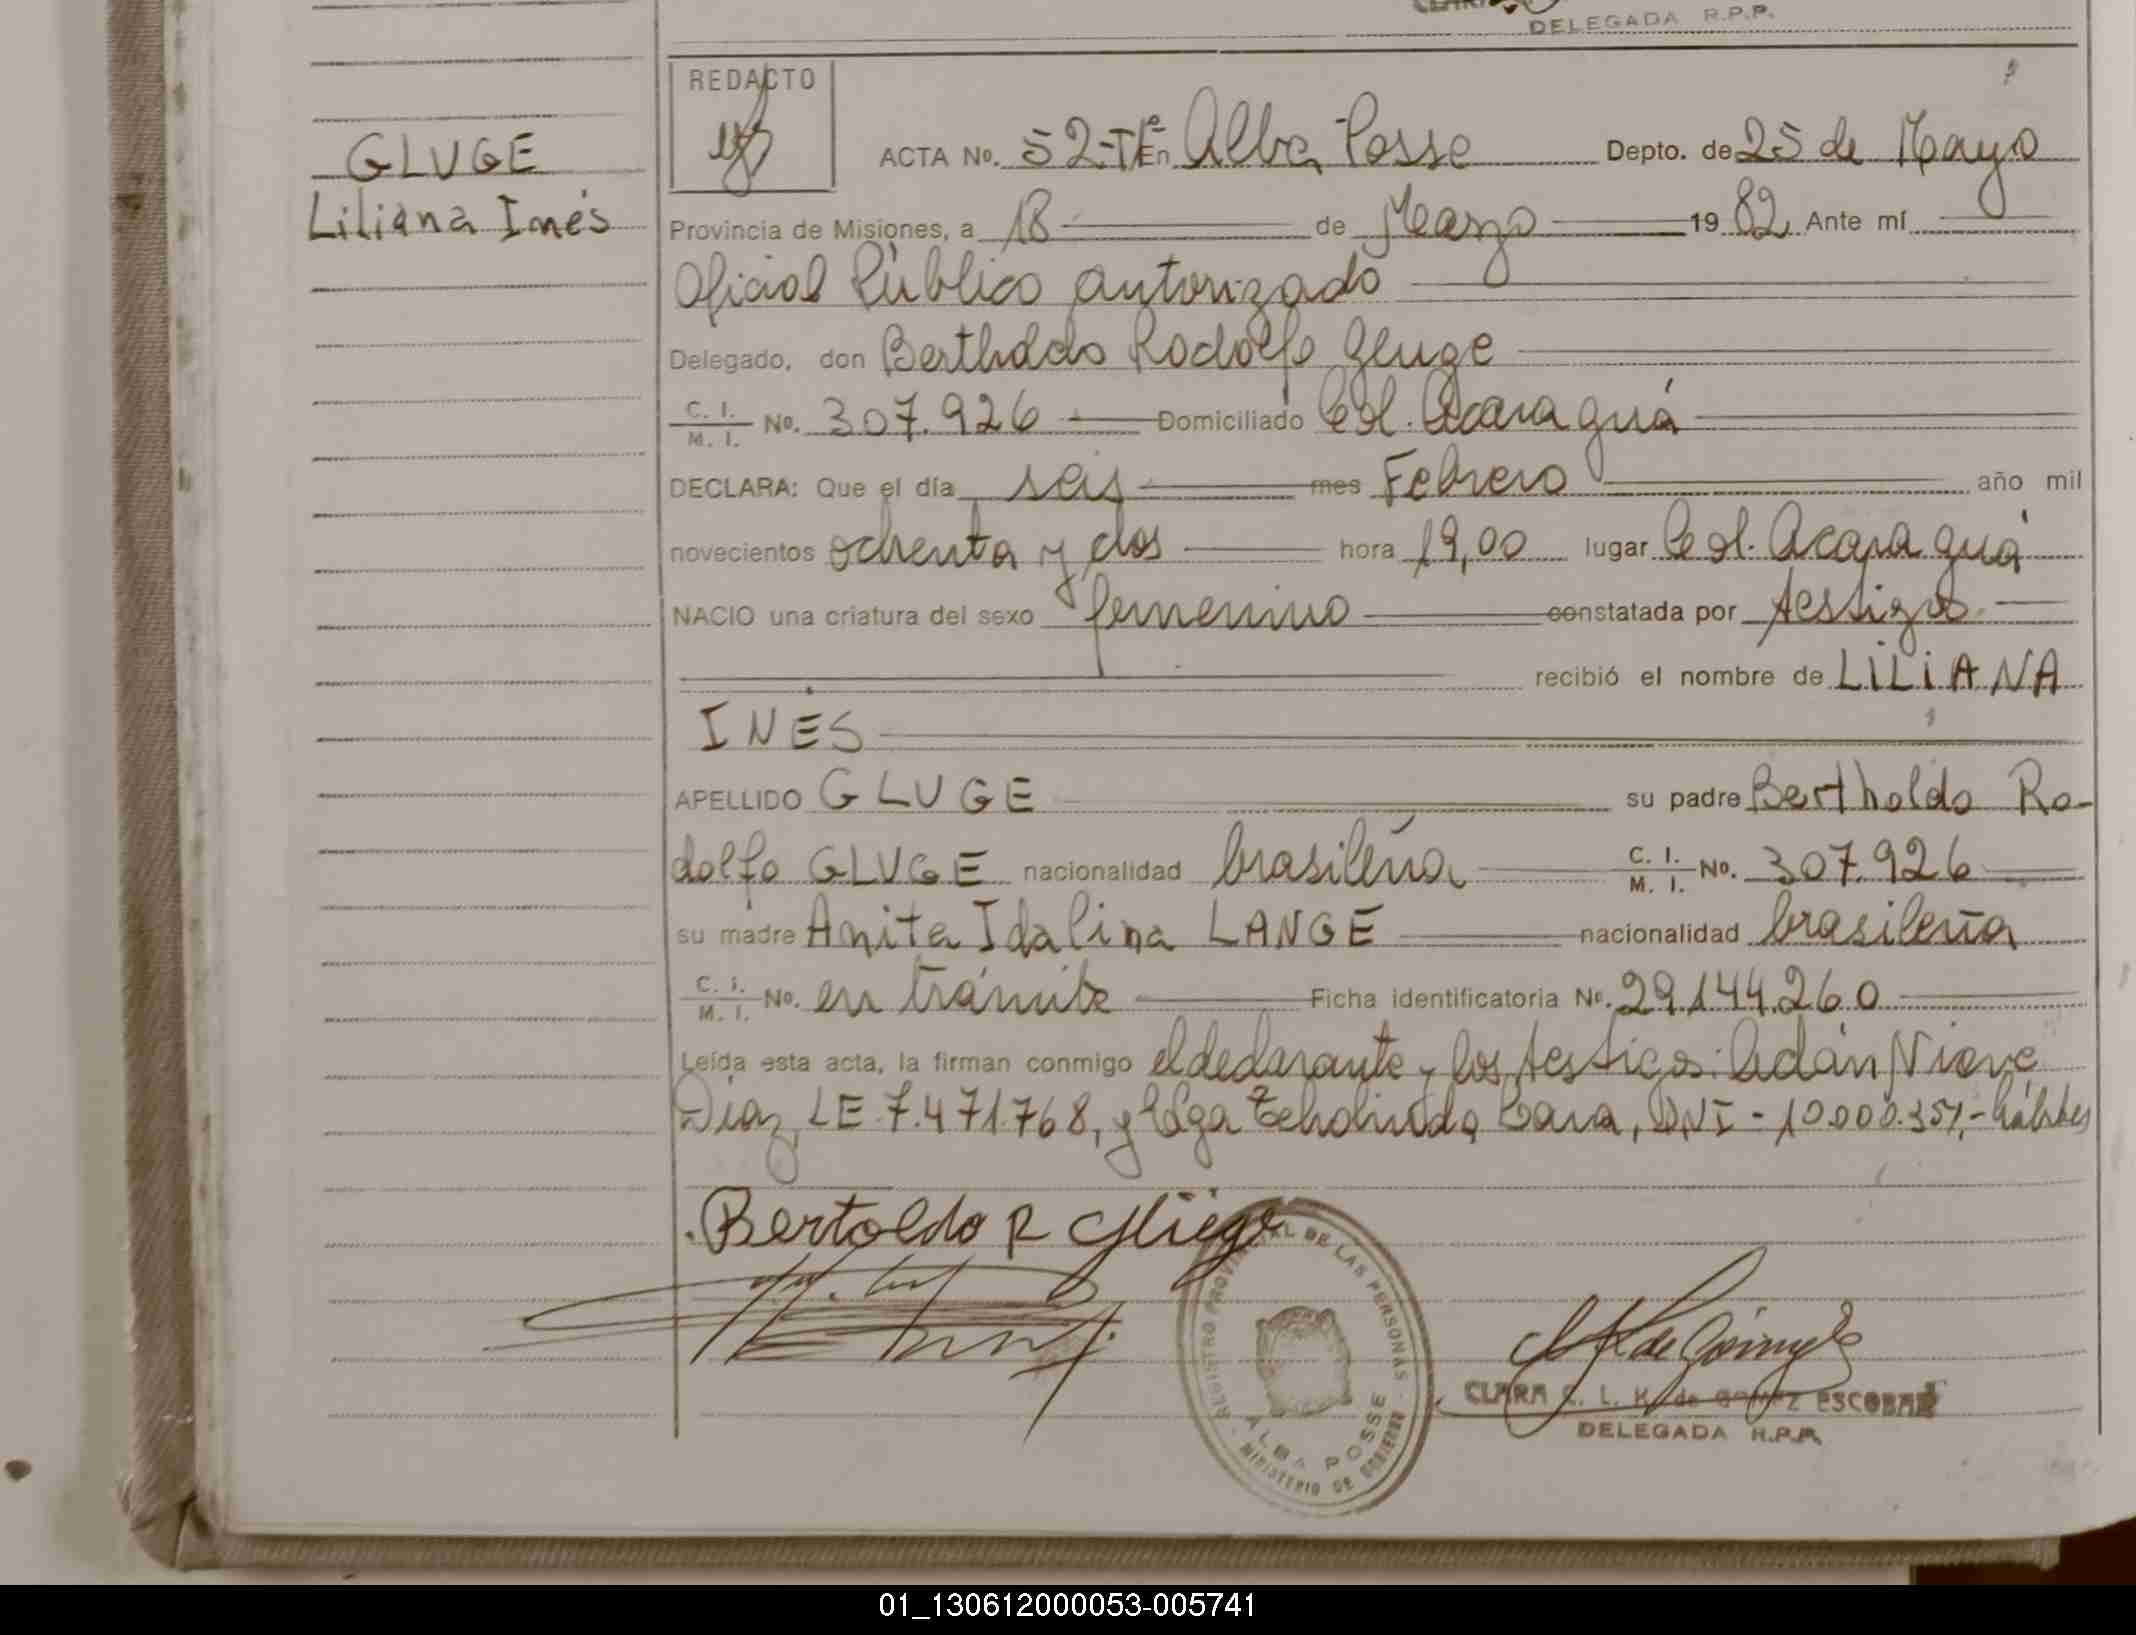 DELEGADA R.P.P.
REDACTO
GLUGE
Liliana Inés
ACTA No. 52-Tº En Alba Posse Depto. de 25 de Mayo
Provincia de Misiones, a 18 de Marzo 19 82 Ante mí
Oficial Público autorizado
Delegado, don Bertholdo Rodolfo Gluge
C. I. M. I. No. 307.926 Domiciliado Col. Acaraguá
DECLARA: Que el día seis mes Febrero año mil
novecientos ochenta y dos hora 19,00 lugar Col. Acaraguá
NACIO una criatura del sexo femenino constatada por testigos
recibió el nombre de LILIANA
INES
APELLIDO GLUGE su padre Bertholdo Ro-
dolfo GLUGE nacionalidad brasileña C. I. M. I. No. 307.926
su madre Anita Idalina LANGE nacionalidad brasileña
C. I. M. I. No. en trámite Ficha identificatoria No. 29.144.260
Leída esta acta, la firman conmigo el declarante y los testigos: Adán
Diaz, LE 7.471.768, y DNI - 10.000.351,- hábiles
Bertoldo R Glüge
REGISTRO PROVINCIAL DE LAS PERSONAS
ALBA POSSE
MINISTERIO DE GOBIERNO
CLARA C. L. K. de Gómez ESCOBAR
DELEGADA R.P.P.
01_130612000053-005741